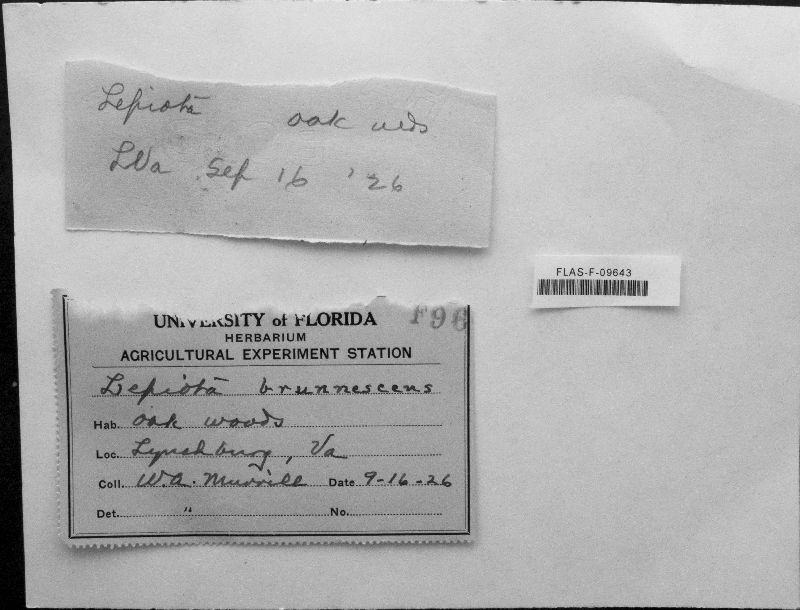 Lepiota oak wds
LVa Sep 16 '26
FLAS-F-09643
F96
UNIVERSITY of FLORIDA
HERBARIUM
AGRICULTURAL EXPERIMENT STATION
Lepiota brunnescens
Hab. oak woods
Loc. Lynchburg, Va
Coll. W.A. Murrill Date 9-16-26
Det. " No.